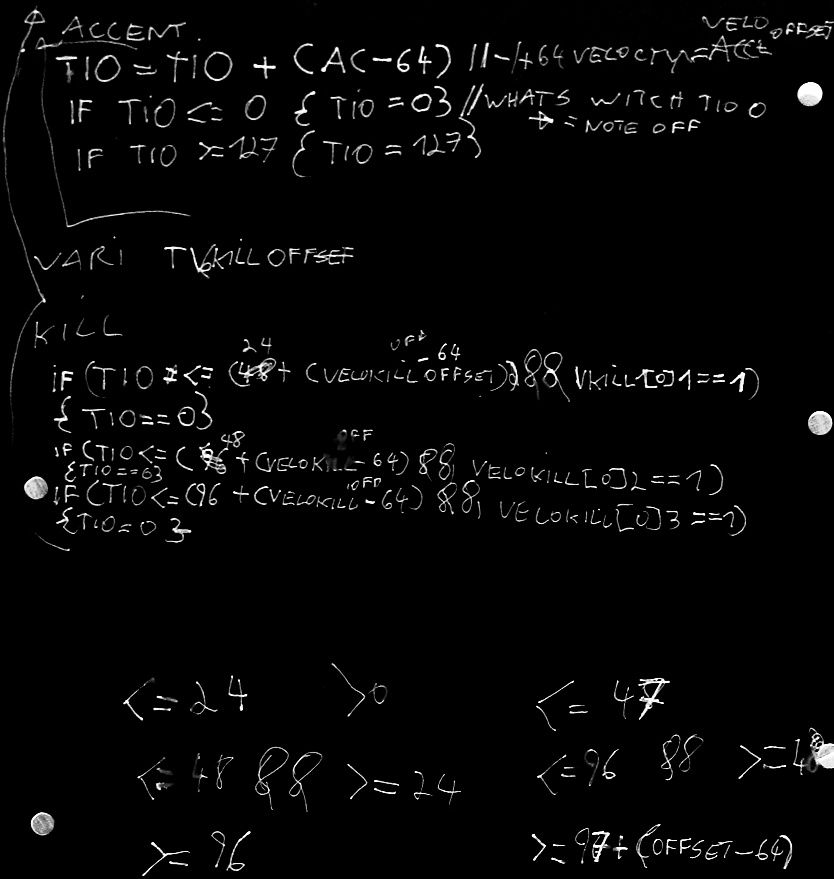 ACCENT.
VELO OFFSET
TIO = TIO + (AC-64) //-/+64 VELOCITY=ACCE
IF TIO <= 0 { TIO = 0} //WHATS WITCH TIO 0
→ = NOTE OFF
IF TIO >=127 { TIO = 127}
VARI TVKILLOFFSET
KILL
24 OFF -64
IF (TIO <= (48+ (VELOKILLOFFSET)) && VKILL[0]1==1)
{ TIO==0}
48 OFF
IF (TIO <= (96 + (VELOKILL-64) && VELOKILL[0]2==1)
{TIO==0}
OFF
IF (TIO <= (96 + (VELOKILL-64) && VELOKILL[0]3==1)
{TIO=0}
<=24 >0 <=47
<=48 && >=24 <=96 && >=48
>=96 >=97+(OFFSET-64)